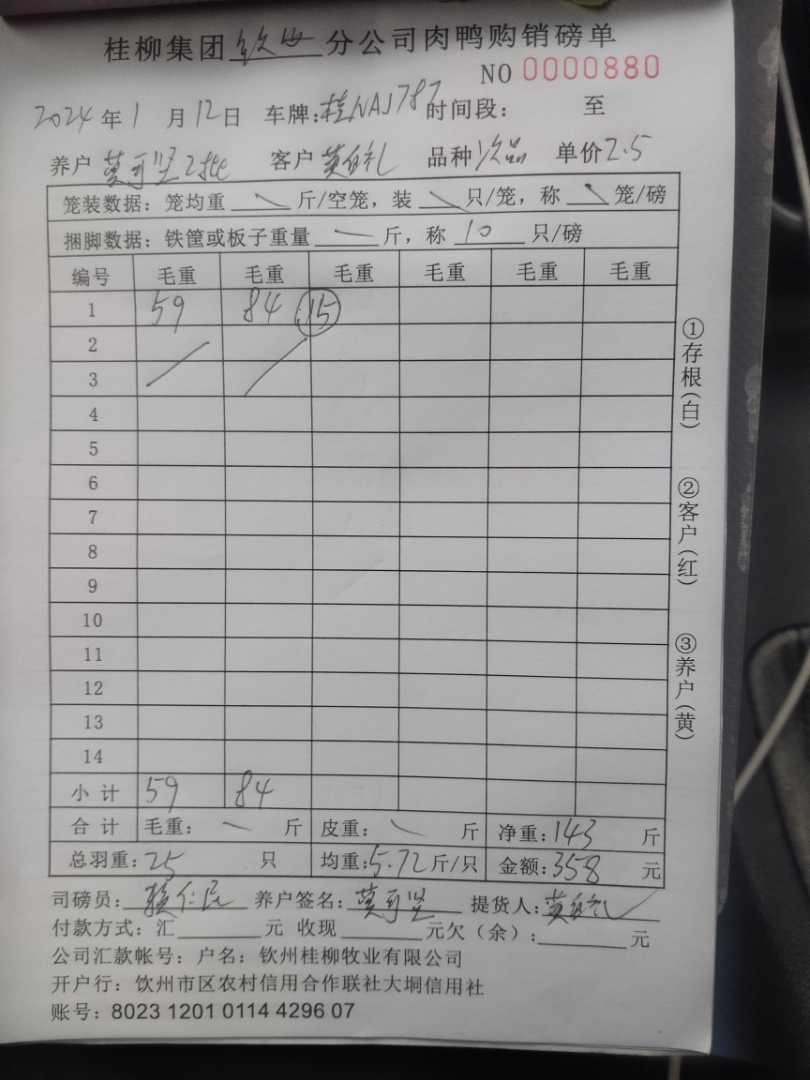 桂柳集团钦州分公司肉鸭购销磅单
NO 0000880
2024年1月12日 车牌:桂NAJ787 时间段: 至
养户 莫可坚2批 客户 黄 礼 品种 次品 单价2.5
笼装数据: 笼均重 斤/空笼, 装 只/笼, 称 笼/磅
捆脚数据: 铁筐或板子重量 斤, 称 10 只/磅
编号 毛重 毛重 毛重 毛重 毛重 毛重
1 59 84 15
2
3
4
5
6
7
8
9
10
11
12
13
14
小计 59 84
合计 毛重: 斤 皮重: 斤 净重:143 斤
总羽重:25 只 均重:5.72斤/只 金额:358 元
司磅员: 养户签名:莫可坚 提货人:黄 礼
付款方式: 汇 元 收现 元欠(余): 元
公司汇款帐号: 户名: 钦州桂柳牧业有限公司
开户行: 钦州市区农村信用合作联社大垌信用社
账号: 8023 1201 0114 4296 07
①存根(白)
②客户(红)
③养户(黄)